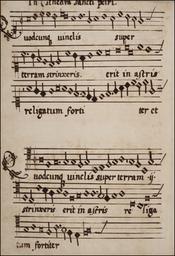 In Cathedra Sancti petri.
uodcunq vinclis super
terram strinxeris. erit in astris
religatum forti ter et
uodcunq vinclis super terram ij.
strinxeris erit in astris re liga
tum fortiter